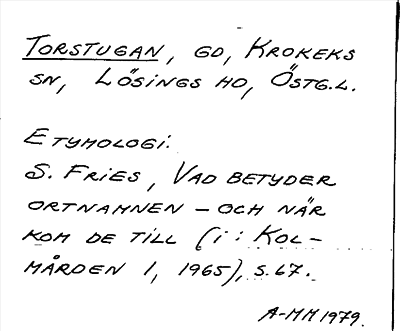 TORSTUGAN, GD, KROKEKS
SN, LÖSINGS HD, ÖSTG.L.
ETYMOLOGI:
S. FRIES, VAD BETYDER
ORTNAMNEN – OCH NÄR
KOM DE TILL (i: KOL-
MÅRDEN 1, 1965), S. 67.
A-MM 1979.